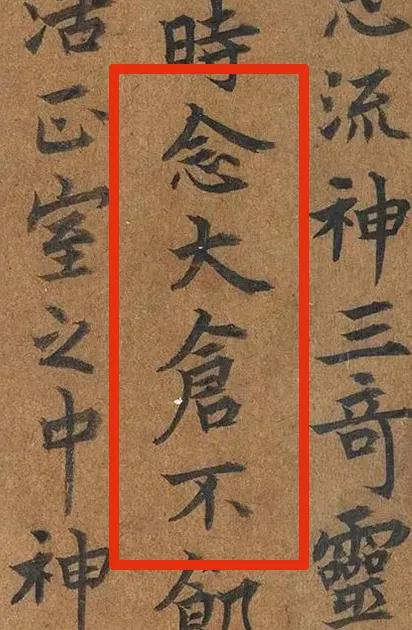 志流神三奇靈
時念大倉不飢
活正室之中神